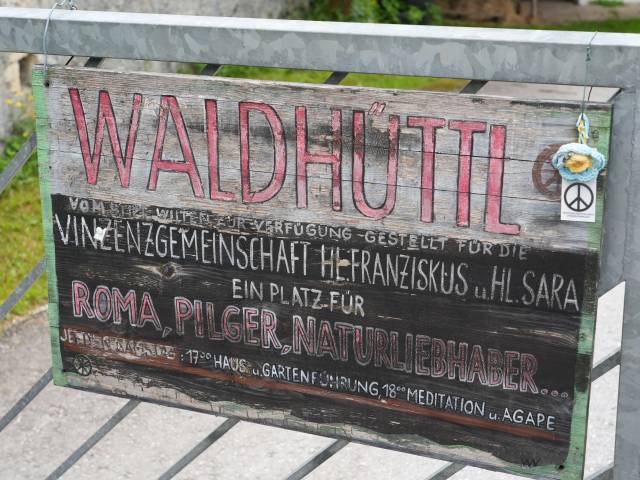 WALDHÜTTL
VOM STIFT WILTEN ZUR VERFÜGUNG GESTELLT FÜR DIE
VINZENZGEMEINSCHAFT HL.FRANZISKUS u. HL. SARA
EIN PLATZ FÜR
ROMA, PILGER, NATURLIEBHABER...
: 17⁰⁰ HAUS u. GARTENFÜHRUNG, 18⁰⁰ MEDITATION u. AGAPE